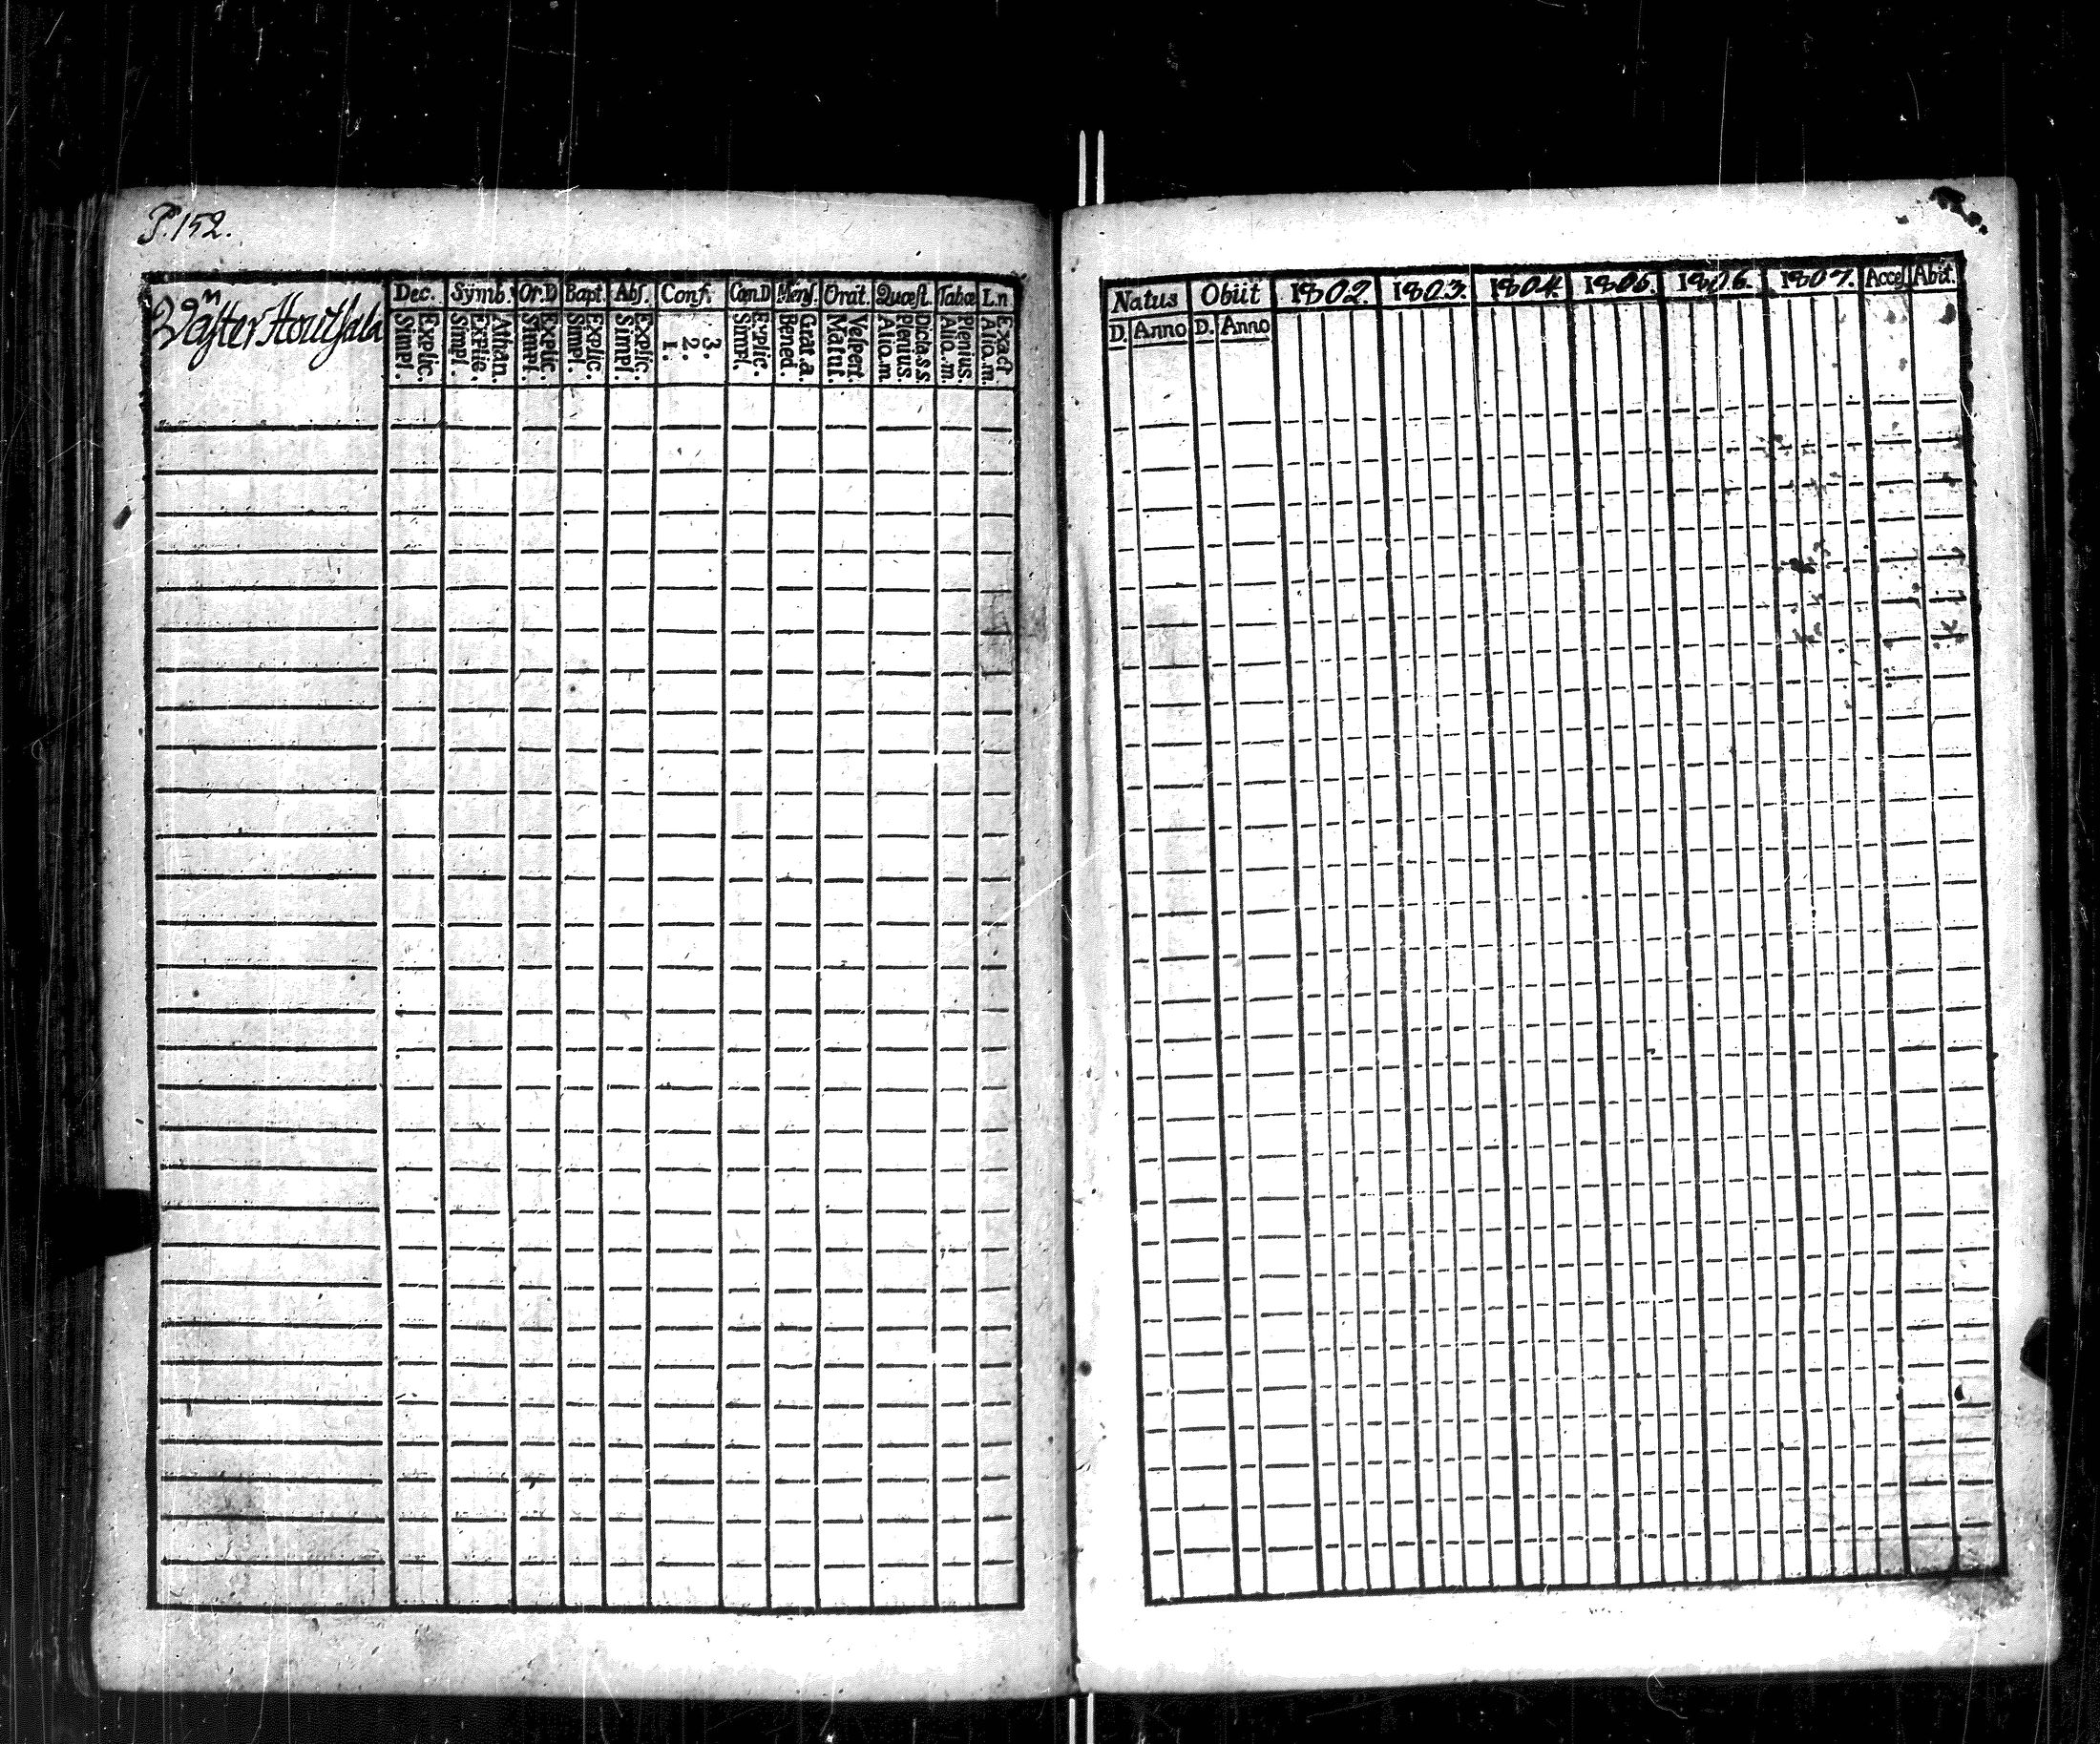 P. 152.
Dec. Symb. Or.D Bapt. Abs. Conf. Cœn.D Mens. Orat. Quæst. Tabæ L.n
Wäster Houtsala
Explic. Simpl.
Athan. Explic. Simpl.
Explic. Simpl.
Explic. Simpl.
Explic. Simpl.
3. 2. 1.
Explic. Simpl.
Grat.a. Bened.
Vespert. Matut.
Dicta.s.s. Plenius. Aliq.m.
Plenius. Aliq.m.
Exact. Aliq.m.
Natus Obiit 1802. 1803. 1804. 1805. 1806. 1807. Acceſ Abit.
D. Anno D. Anno